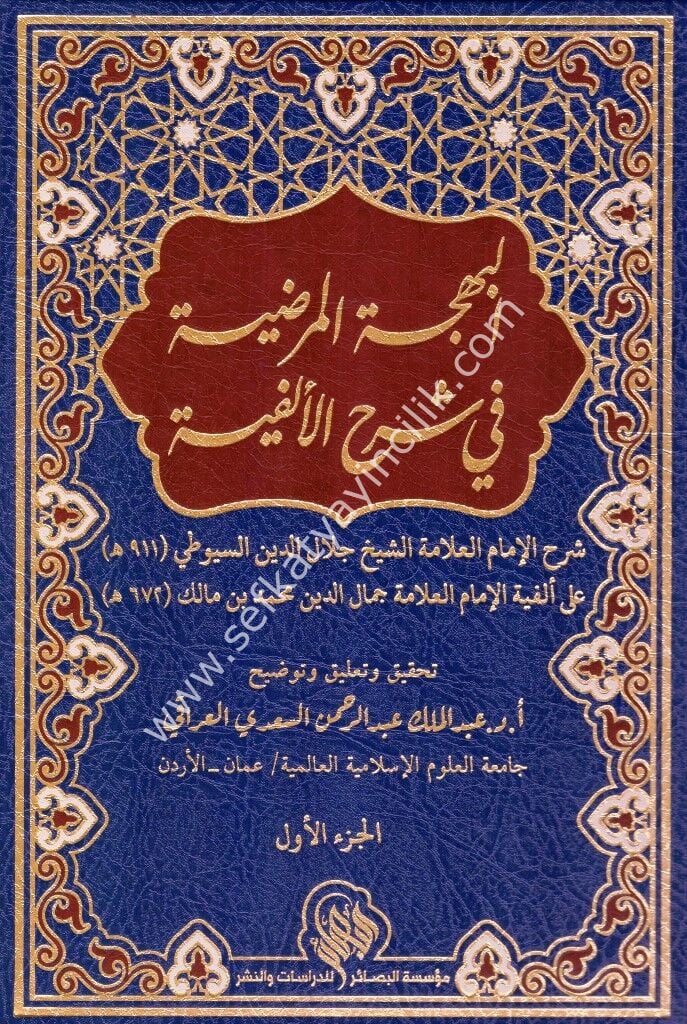 البهجة المرضية
في شرح الألفية
شرح الإمام العلامة الشيخ جلال الدين السيوطي (٩١١ هـ)
على ألفية الإمام العلامة جمال الدين محمد بن مالك (٦٧٢ هـ)
تحقيق وتعليق وتوضيح
أ.د. عبدالملك عبدالرحمن السعدي العراقي
جامعة العلوم الإسلامية العالمية/ عمان - الأردن
الجزء الأول
البصائر
مؤسسة البصائر للدراسات والنشر
www.sefkatyayincilik.com